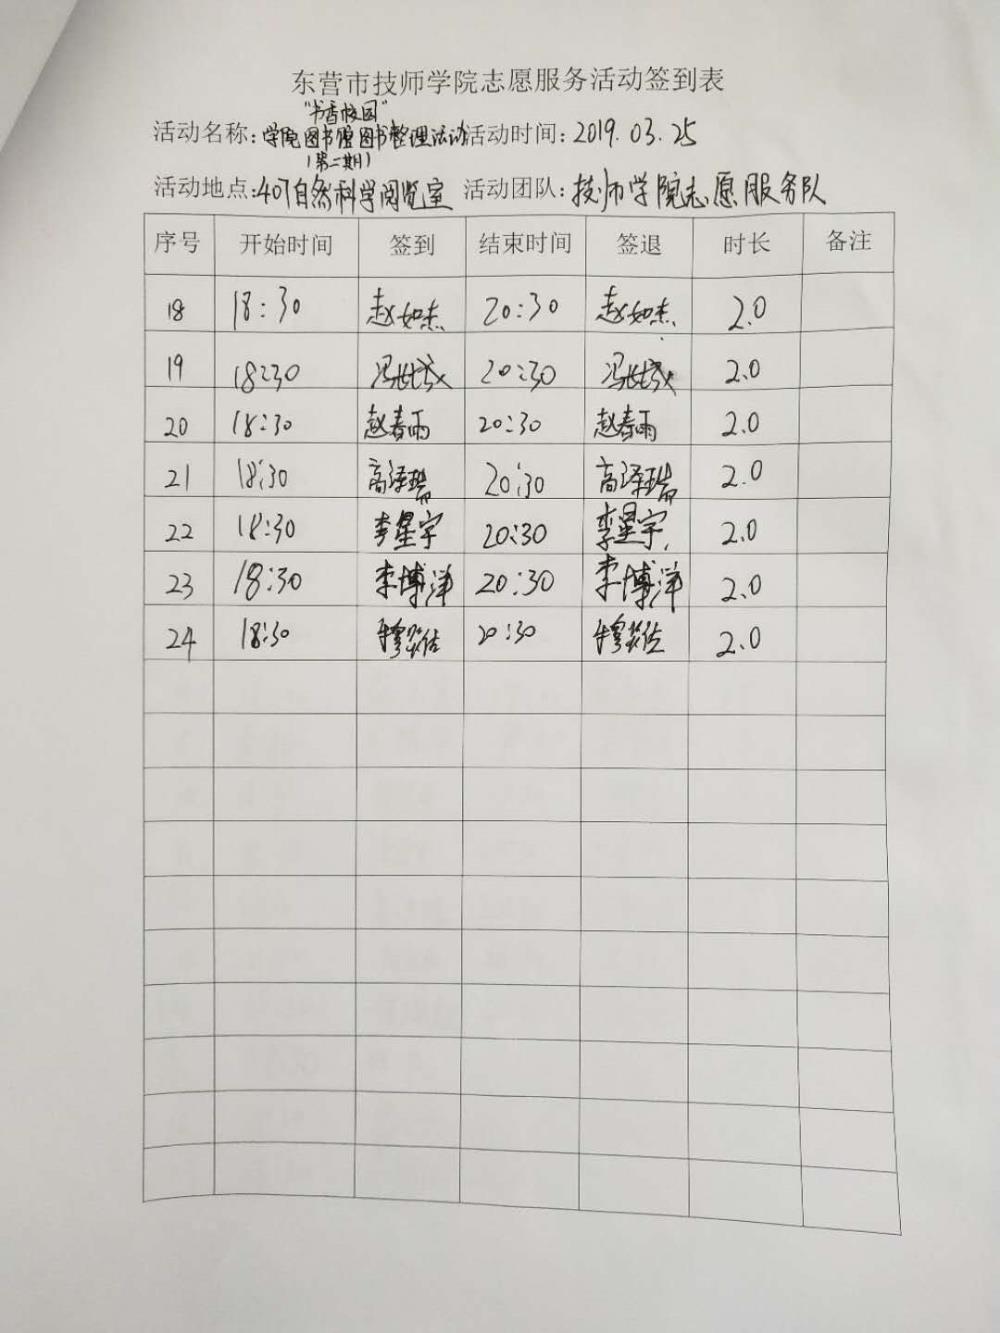 东营市技师学院志愿服务活动签到表
"书香校园"
活动名称:学院图书馆图书整理活动 活动时间:2019.03.25
(第二期)
活动地点:407自然科学阅览室 活动团队:技师学院志愿服务队
序号 开始时间 签到 结束时间 签退 时长 备注
18 18:30 赵如杰 20:30 赵如杰 2.0
19 18:30 20:30 2.0
20 18:30 赵春雨 20:30 赵春雨 2.0
21 18:30 高泽瑞 20:30 高泽瑞 2.0
22 18:30 李星宇 20:30 李星宇 2.0
23 18:30 李博洋 20:30 李博洋 2.0
24 18:30 20:30 2.0